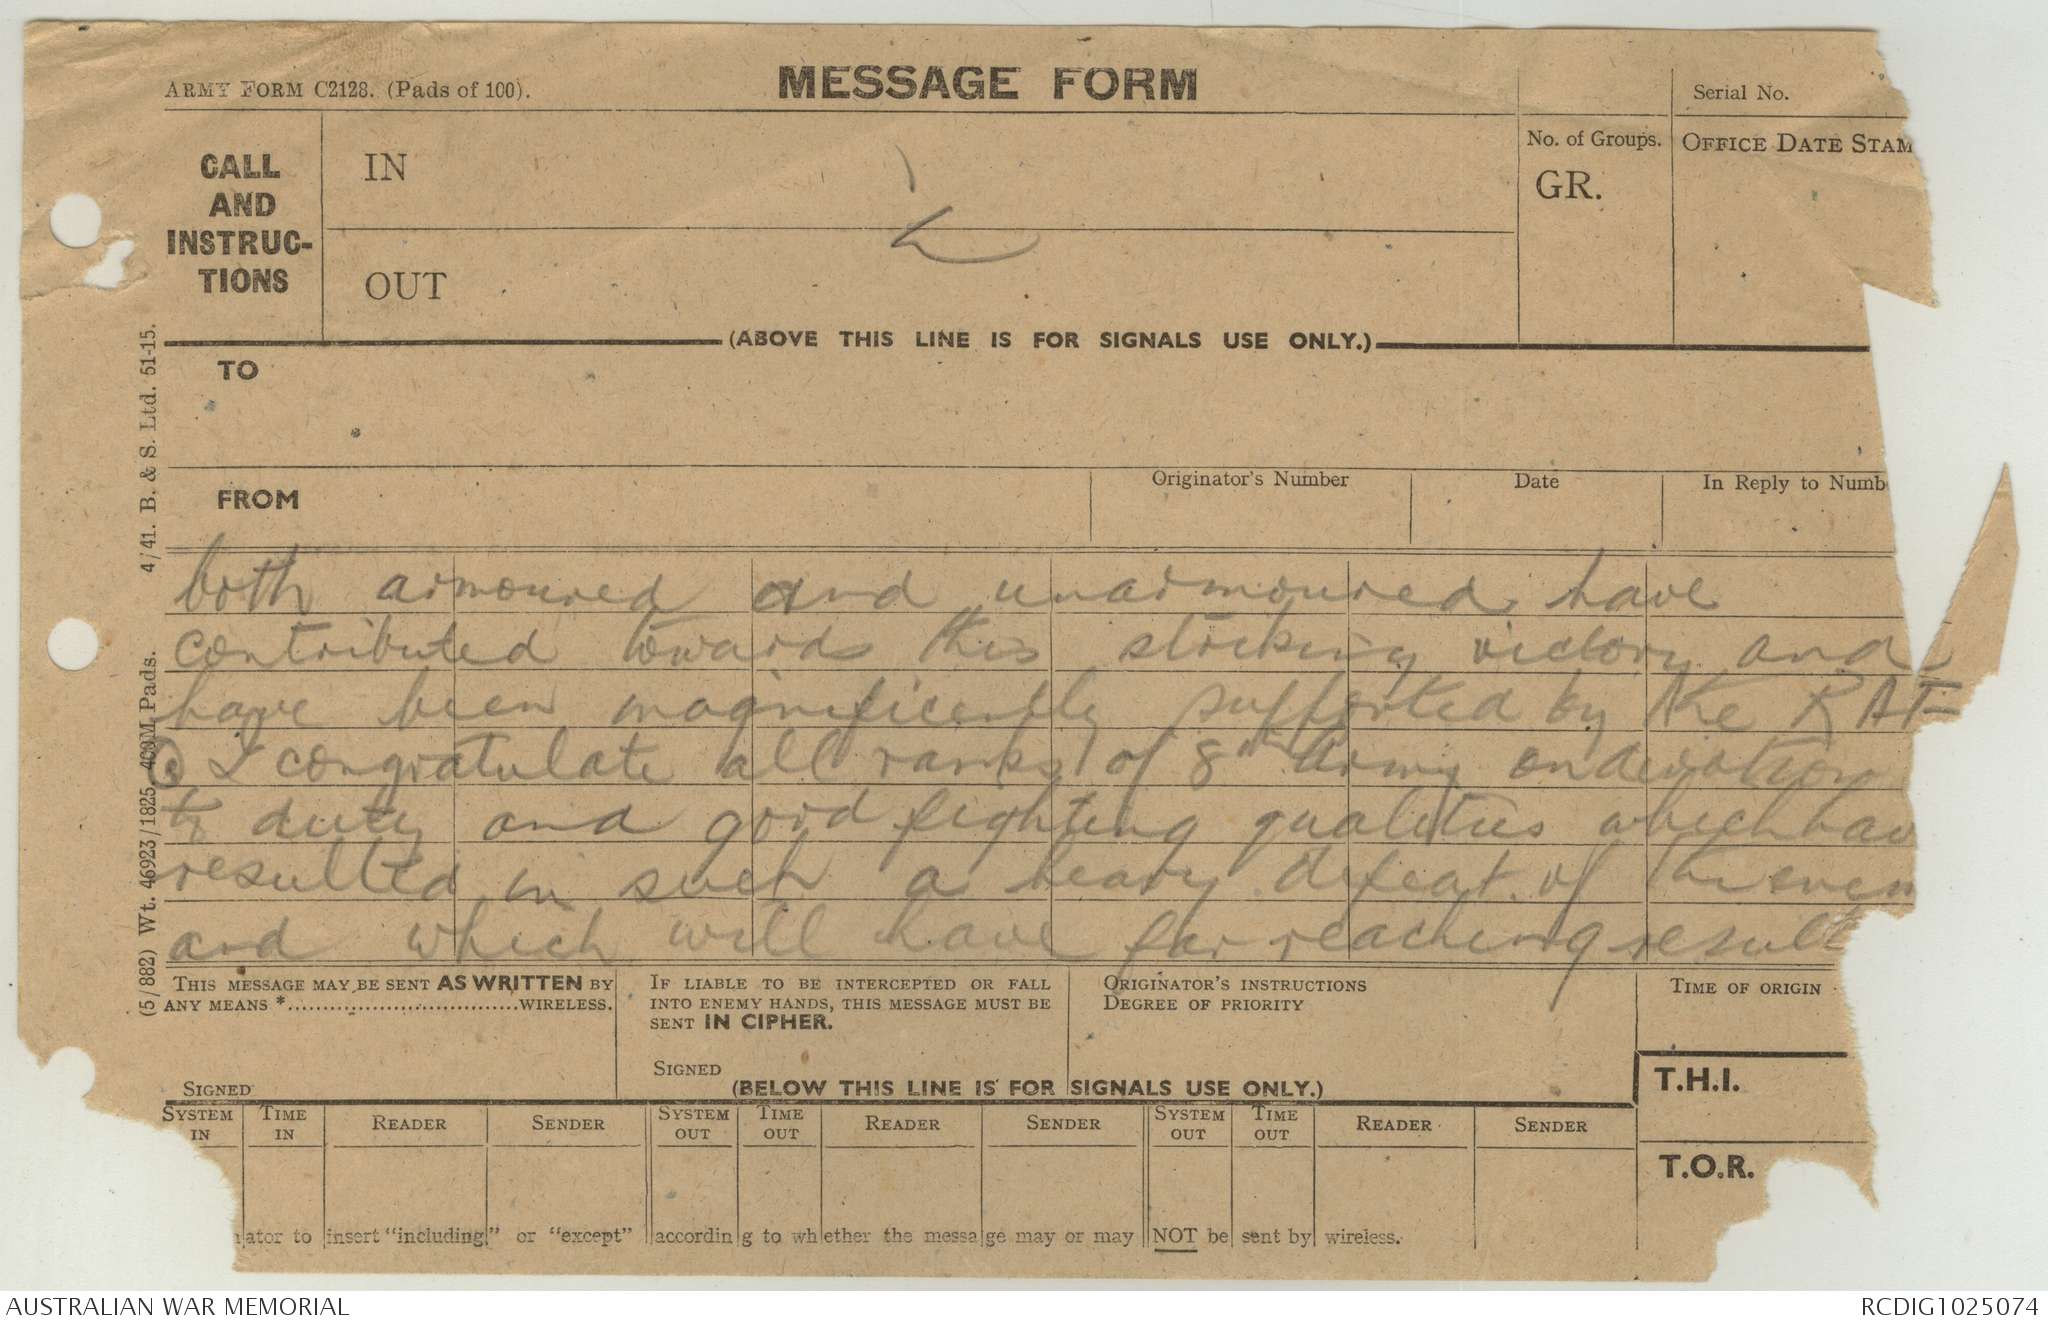 ARMY FORM C2128. (Pads of 100).
MESSAGE FORM
Serial No.
CALL AND INSTRUC-TIONS
IN
OUT
No. of Groups.
GR.
OFFICE DATE STAM
(ABOVE THIS LINE IS FOR SIGNALS USE ONLY.)
TO
FROM
Originator's Number
Date
In Reply to Numb
both armoured and unarmoured have
contributed towards this striking victory and
have been magnificently supported by the RAF
I congratulate all ranks of 8th Army on devotion
to duty and good fighting qualities which hav
resulted in such a heavy defeat of the enem
and which will have far reaching result
(5/882) Wt. 46923/1825 400M Pads. 4/41. B. & S. Ltd. 51-15.
THIS MESSAGE MAY BE SENT AS WRITTEN BY
ANY MEANS *.................................WIRELESS.
SIGNED
IF LIABLE TO BE INTERCEPTED OR FALL
INTO ENEMY HANDS, THIS MESSAGE MUST BE
SENT IN CIPHER.
SIGNED
ORIGINATOR'S INSTRUCTIONS
DEGREE OF PRIORITY
TIME OF ORIGIN
(BELOW THIS LINE IS FOR SIGNALS USE ONLY.)
T.H.I.
SYSTEM IN
TIME IN
READER
SENDER
SYSTEM OUT
TIME OUT
READER
SENDER
SYSTEM OUT
TIME OUT
READER
SENDER
T.O.R.
ator to insert "including" or "except" according to whether the message may or may NOT be sent by wireless.
AUSTRALIAN WAR MEMORIAL
RCDIG1025074